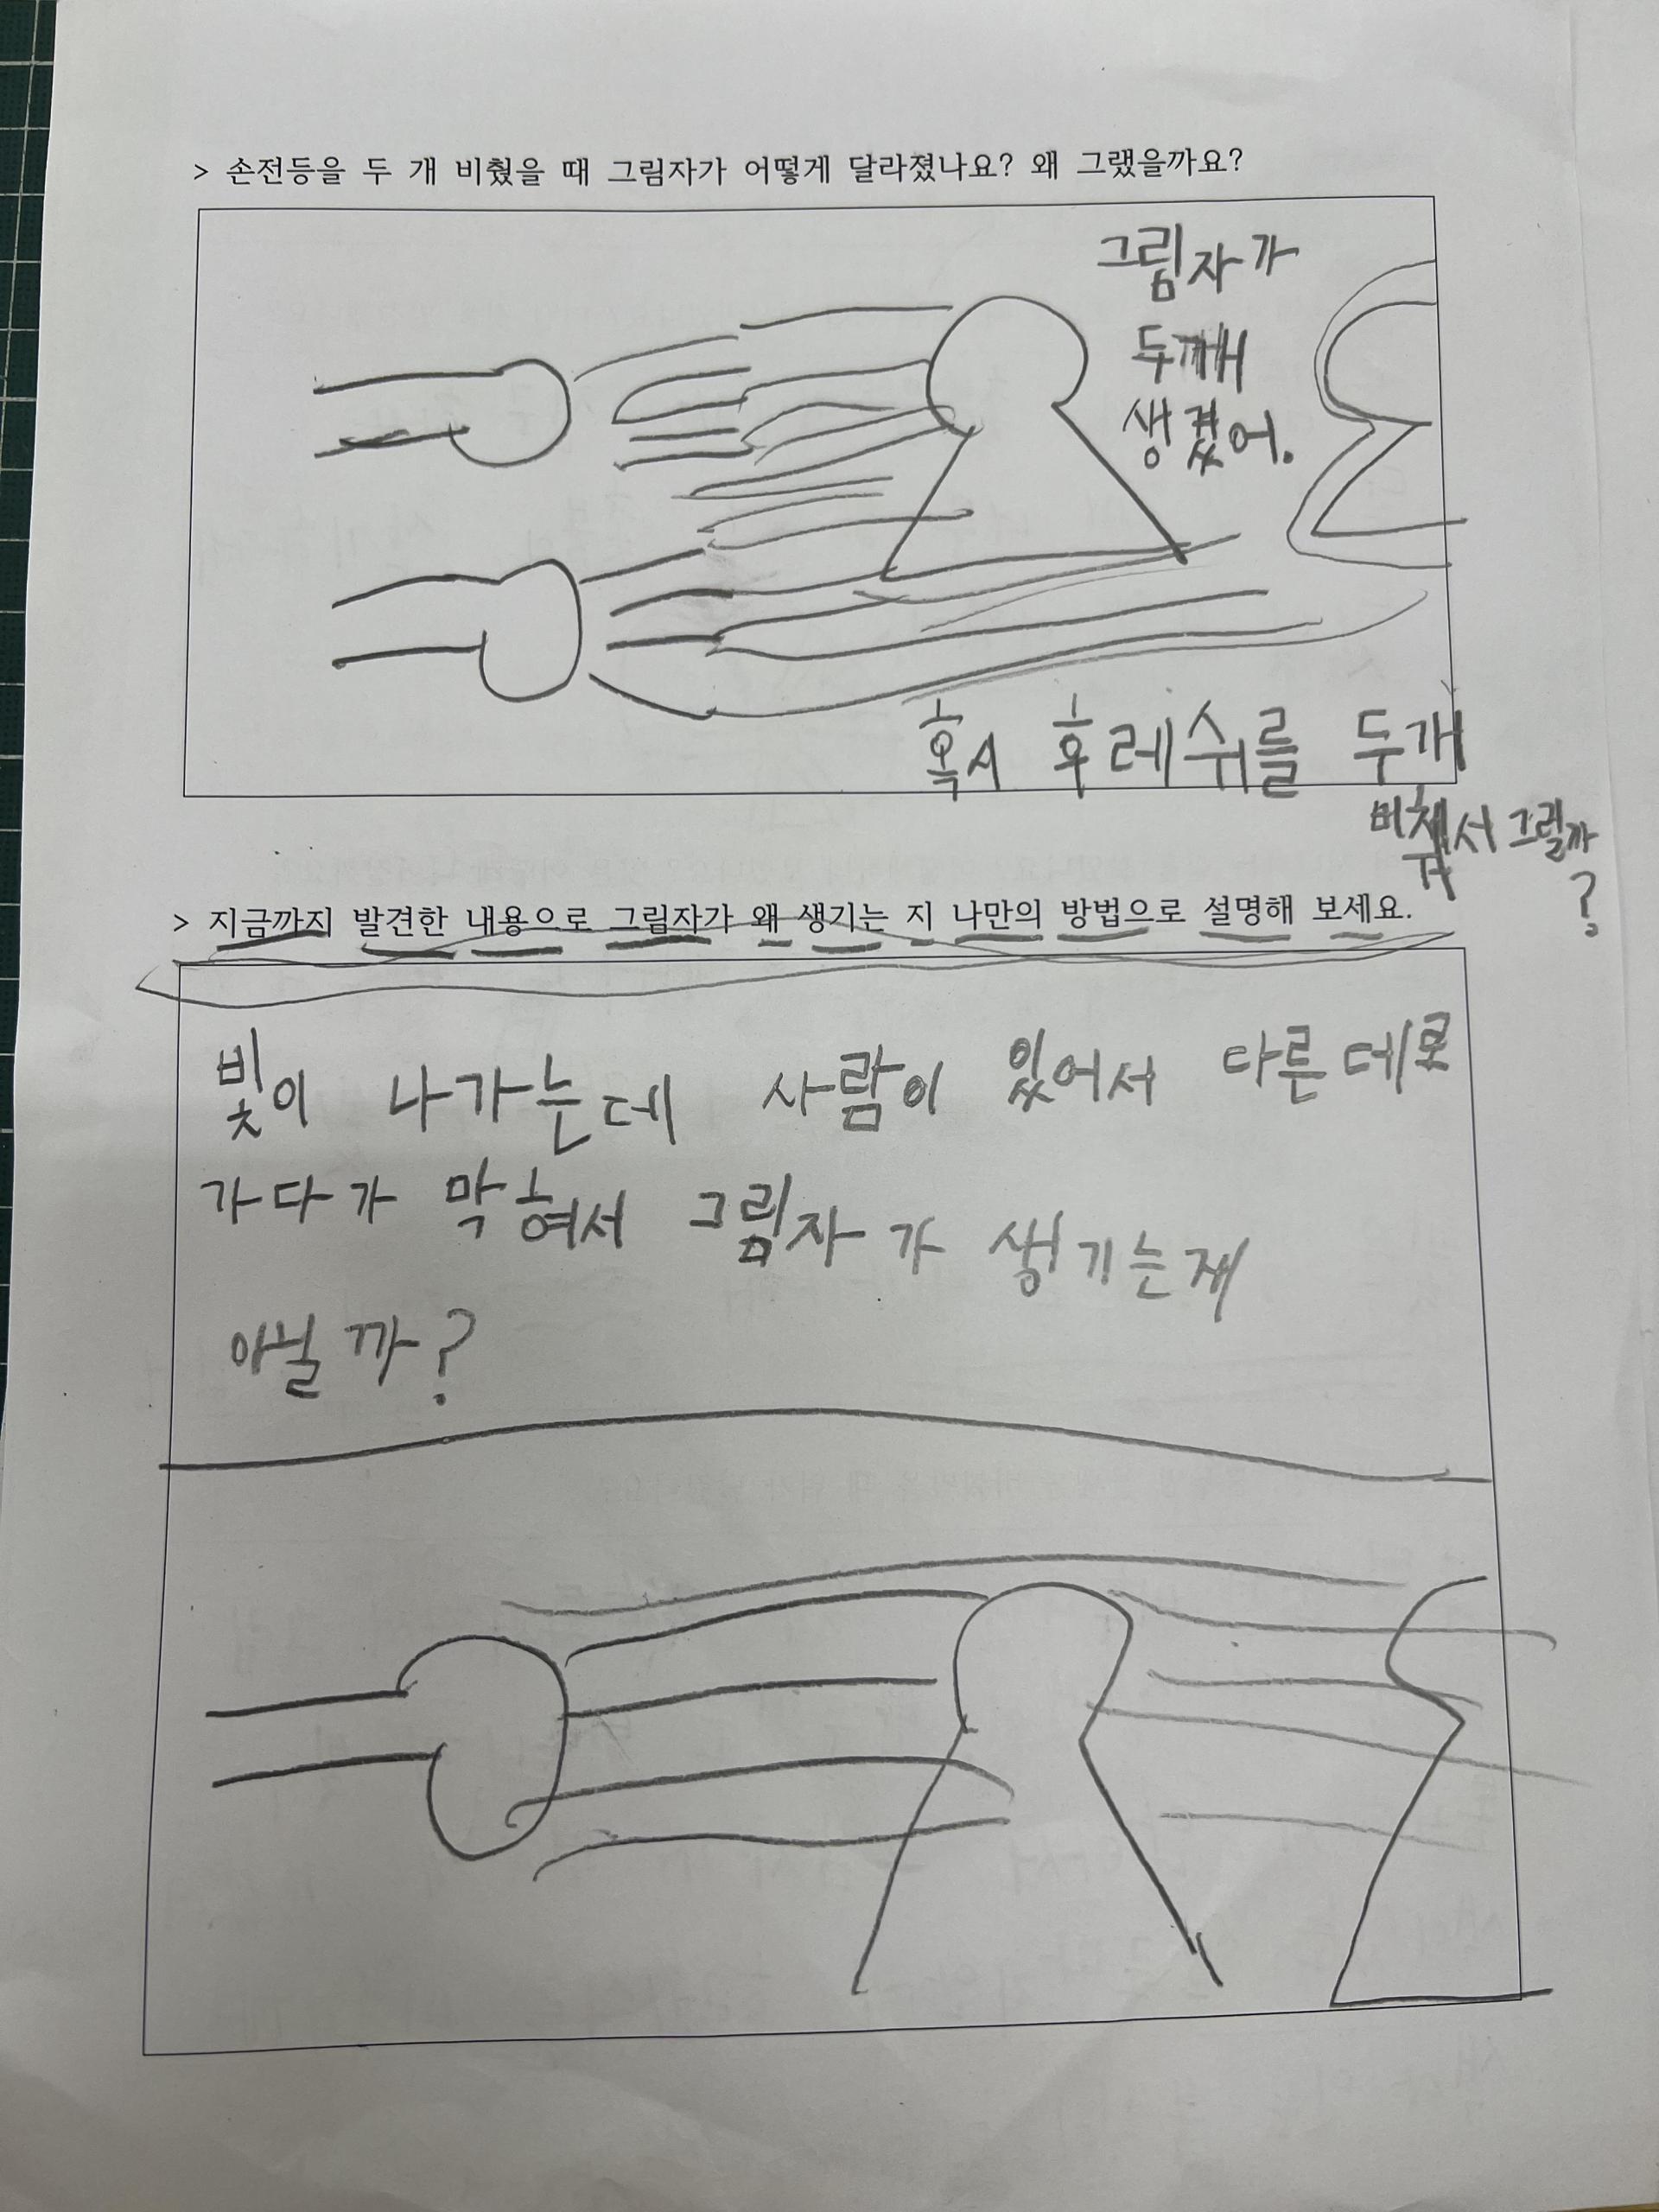 > 손전등을 두 개 비췄을 때 그림자가 어떻게 달라졌나요? 왜 그랬을까요?
그림자가
두깨
생겼어.
혹시 후레쉬를 두개
비춰서 그럴까
?
> 지금까지 발견한 내용으로 그림자가 왜 생기는 지 나만의 방법으로 설명해 보세요.
빛이 나가는데 사람이 있어서 다른데로
가다가 막혀서 그림자가 생기는재
아닐까?